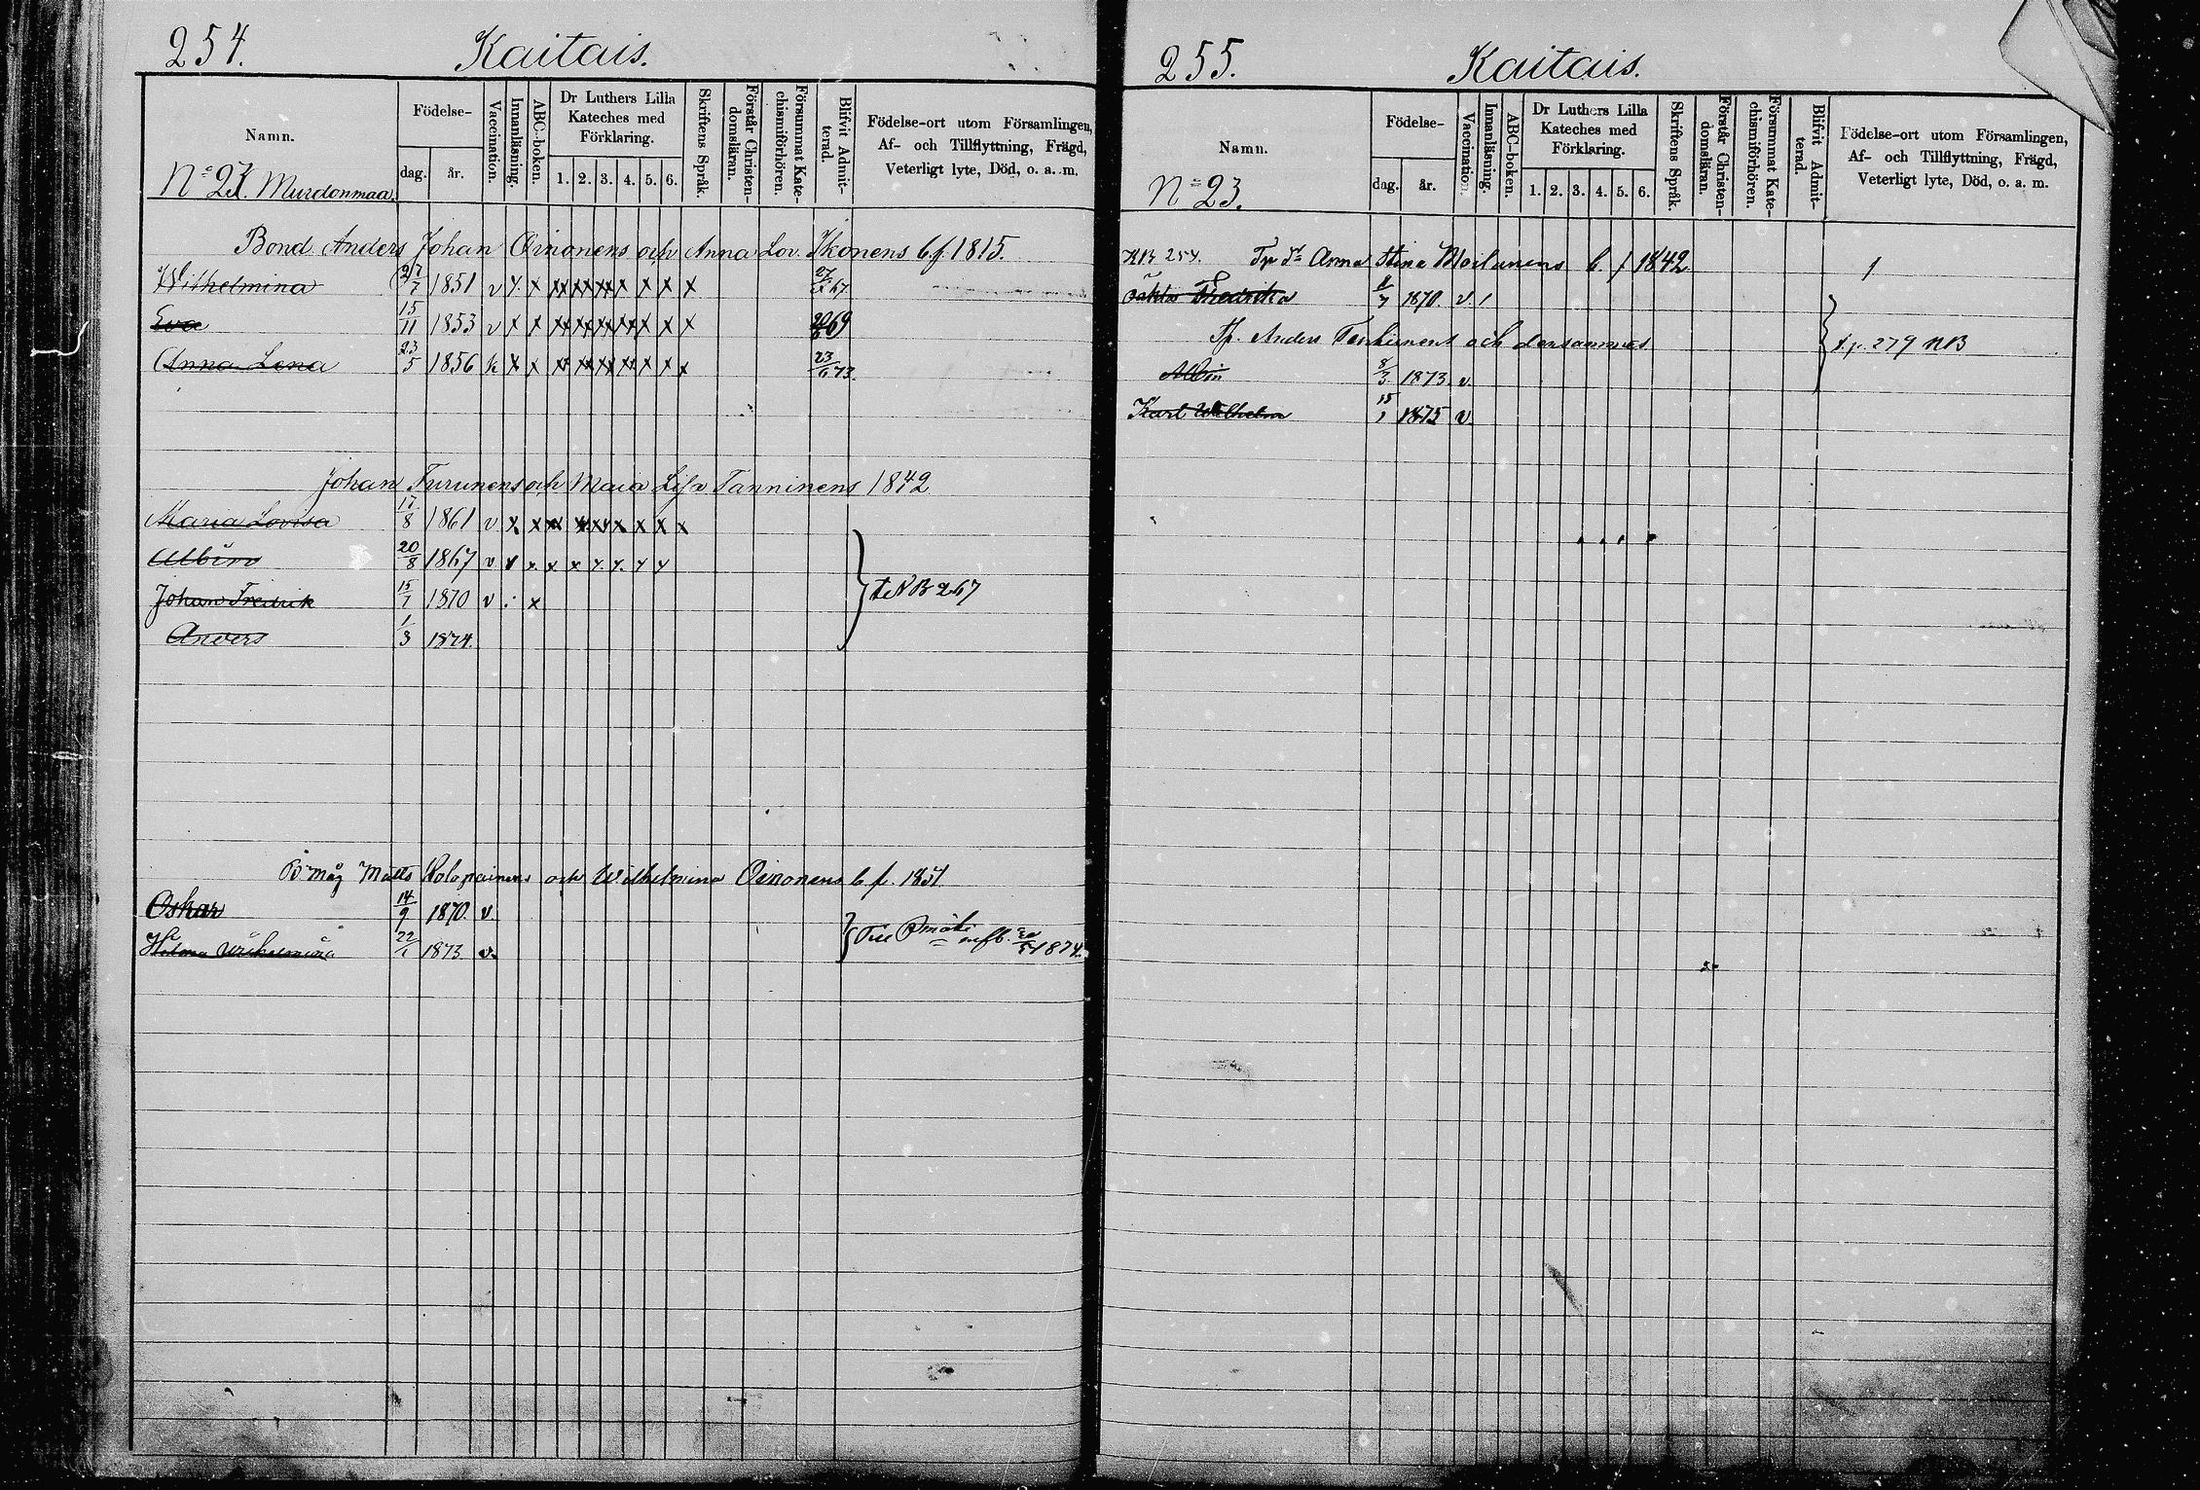 254. Kaitais.
Namn.
Födelse-
dag. år.
Vaccination.
Innanläsning.
ABC-boken.
Dr Luthers Lilla
Kateches med
Förklaring.
1. 2. 3. 4. 5. 6.
Skriftens Språk.
Förstår Christen-
domsläran.
Försummat Kate-
chismiförhören.
Blifvit Admit-
terad.
Födelse-ort utom Församlingen,
Af- och Tillflyttning, Frägd,
Veterligt lyte, Död, o. a. m.
Murdonmaa.
Bond. Anders Johan Oinonens och Anna Lov. Ikonens b. f. 1815.
Wilhelmina 27/7 1851 v x x x x x x x x x 67
Eva 15/11 1853 v x x x x x x x x x 69
Anna Lena 23/5 1856 k x x x x x x x x x 23/6 73.
Johan Turunens och Maia Lisa Tanninens 1842
Maria Lovisa 17/8 1861 v x x x x x x x x x
Albin 20/8 1867 v x x x x x x x x
Johan Fredrik 15/7 1870 v x
Anders 1/3 1874.
t. NB 267
B måg Matts Kolopainens och Wilhelmina Oinonens b f. 1851
Oskar 14/9 1870. v.
Hilma Wilhelmina 22/1 1873. v.
1874.
255. Kaitais.
Namn.
Nº 23.
Födelse-
dag. år.
Vaccination.
Innanläsning.
ABC-boken.
Dr Luthers Lilla
Kateches med
Förklaring.
1. 2. 3. 4. 5. 6.
Skriftens Språk.
Förstår Christen-
domsläran.
Försummat Kate-
chismiförhören.
Blifvit Admit-
terad.
Födelse-ort utom Församlingen,
Af- och Tillflyttning, Frägd,
Veterligt lyte, Död, o. a. m.
254. Anna Stina Moilanens b. f 1842
Fredrika 1870. v. /
Anders och densammes
t. p. 279 NB
Albin 8/3 1873. v.
Karl Wilhelm 15/1 1875 v.